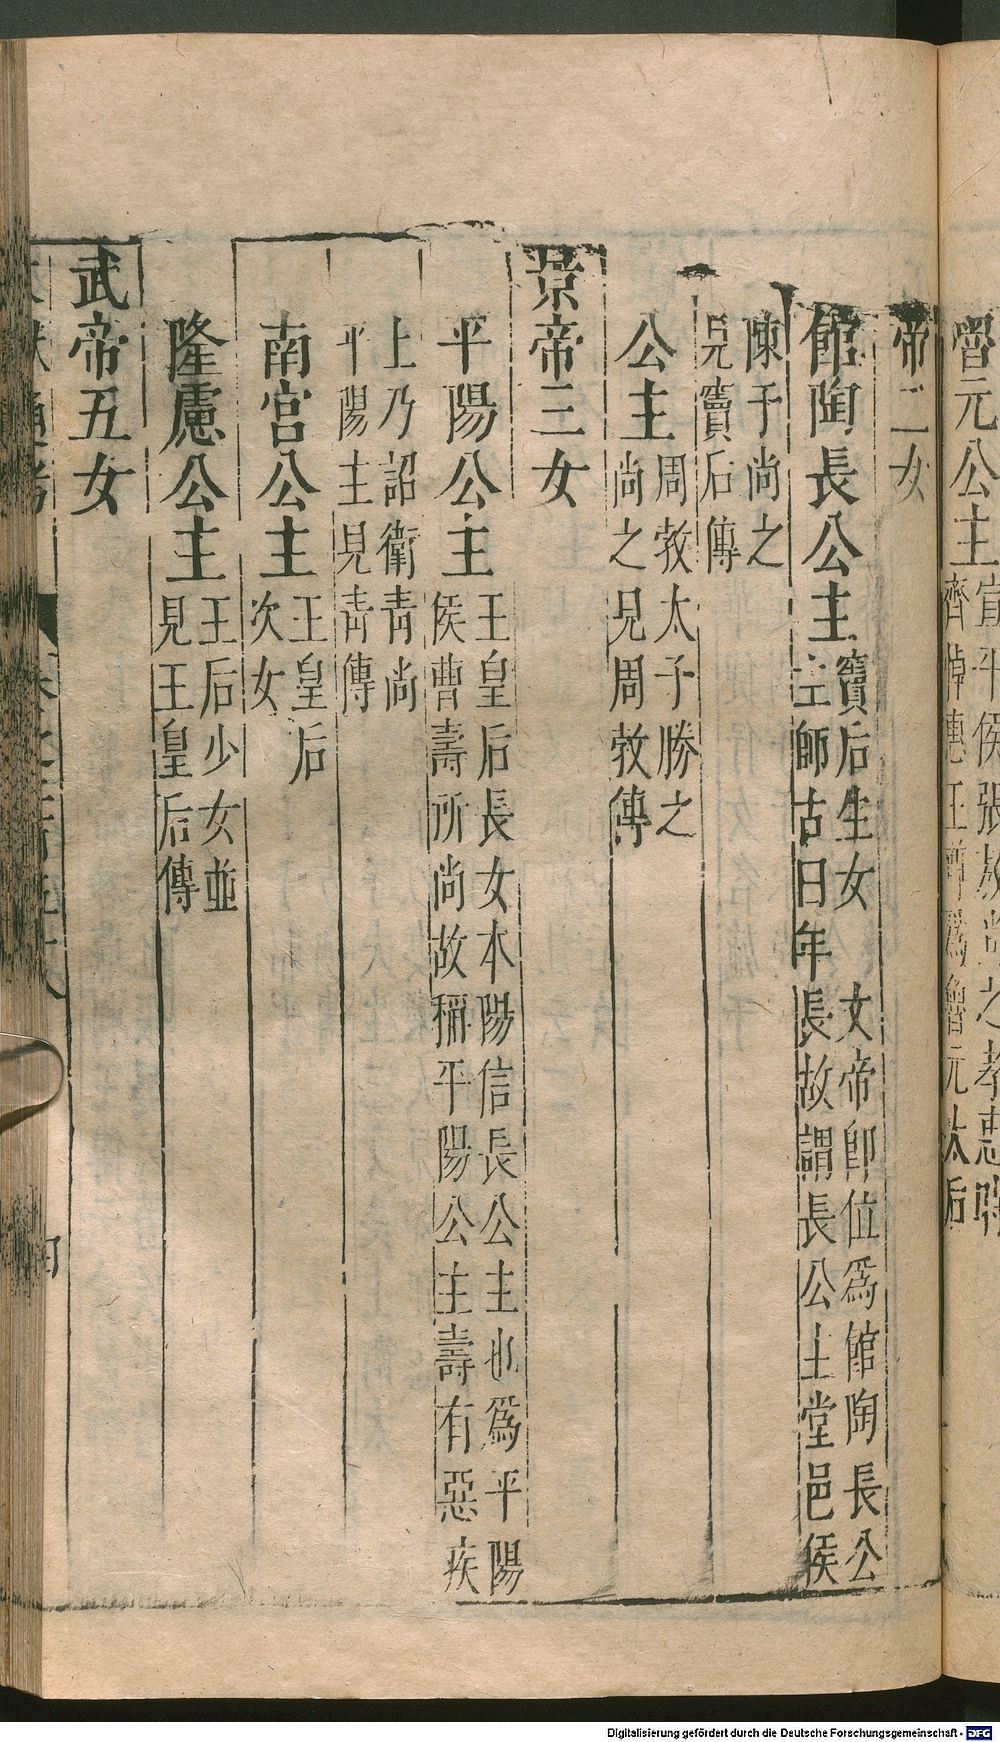 魯元公主
宣平侯張敖尚之孝惠
齊悼惠王尊爲魯元太后
帝二女
館陶長公主
竇后生女 文帝卽位爲館陶長公
主師古曰年長故謂長公主堂邑侯
陳午尚之
見竇后傳
公主
周勃太子勝之
尚之見周勃傳
景帝三女
平陽公主
王皇后長女本陽信長公主也爲平陽
侯曹壽所尚故稱平陽公主壽有惡疾
上乃詔衛青尚
平陽主見青傳
南宮公主
王皇后
次女
隆慮公主
王后少女並
見王皇后傳
武帝五女
Digitalisierung gefördert durch die Deutsche Forschungsgemeinschaft - DFG